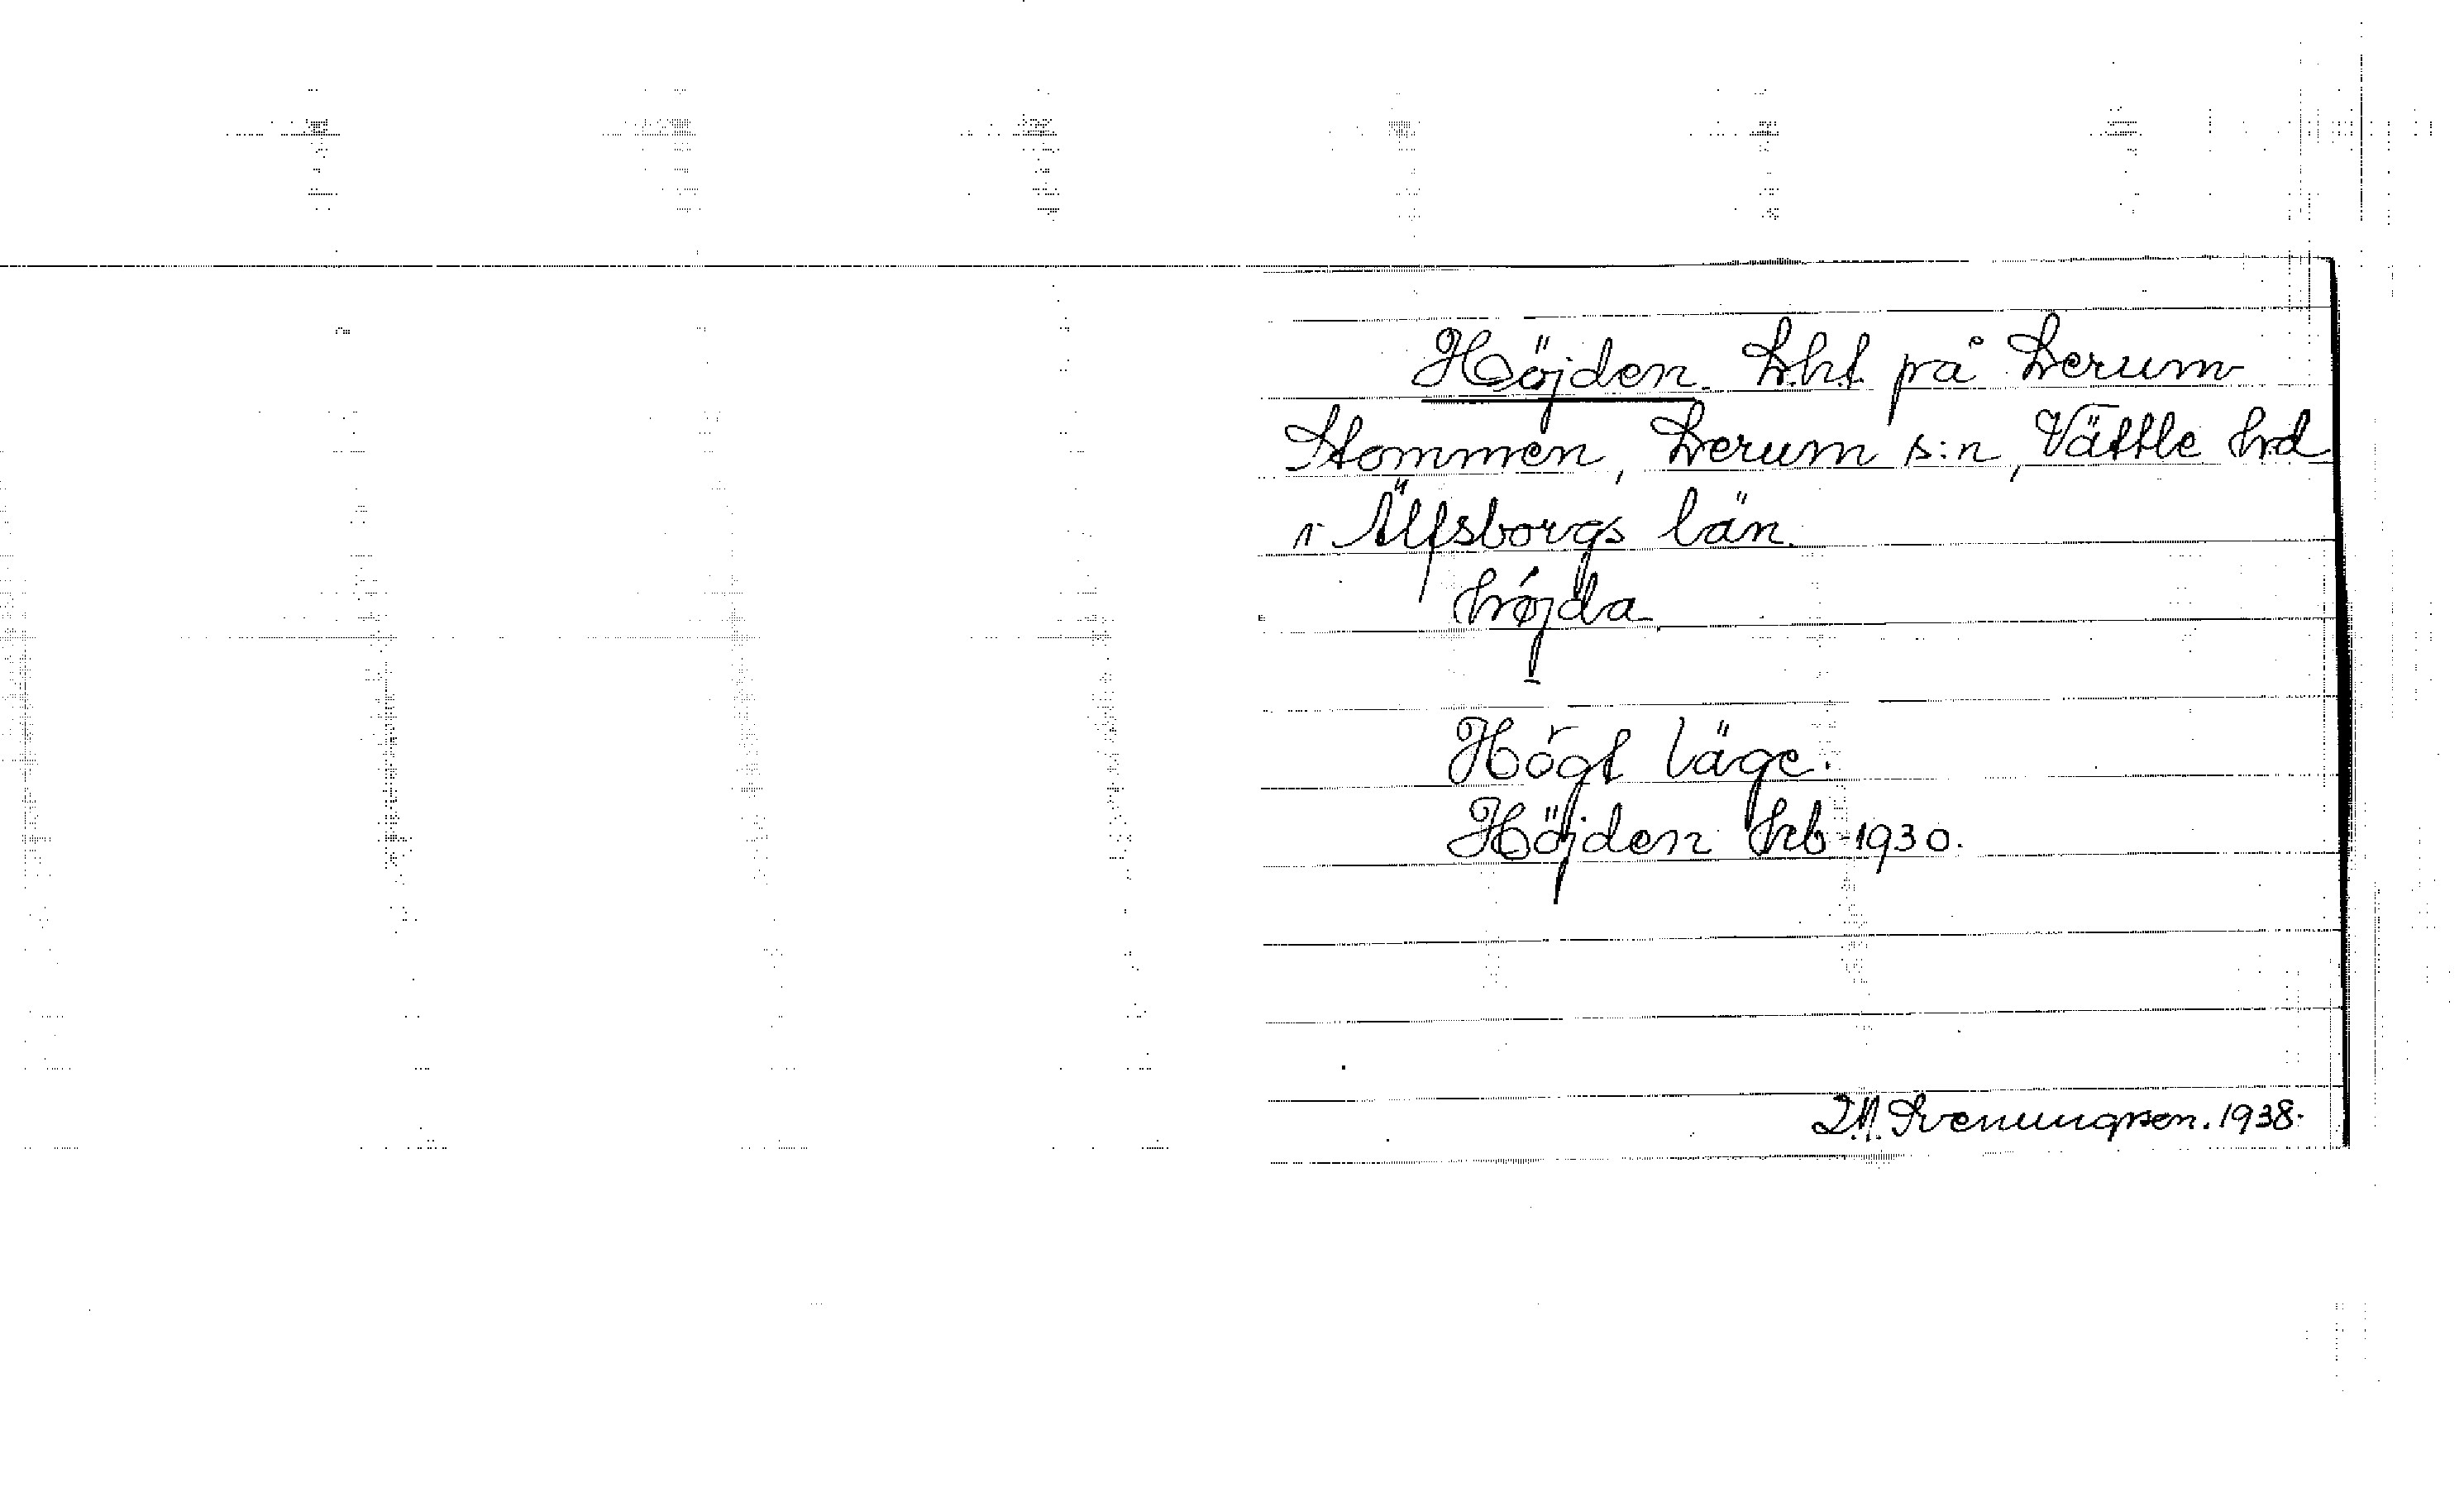 Höjden. Lht. på Lerum
Stommen, Lerum s:n, Vättle hd
i Älfsborgs län.
höjda
Högt läge.
Höjden hrb 1930.
Svenungsson. 1938.